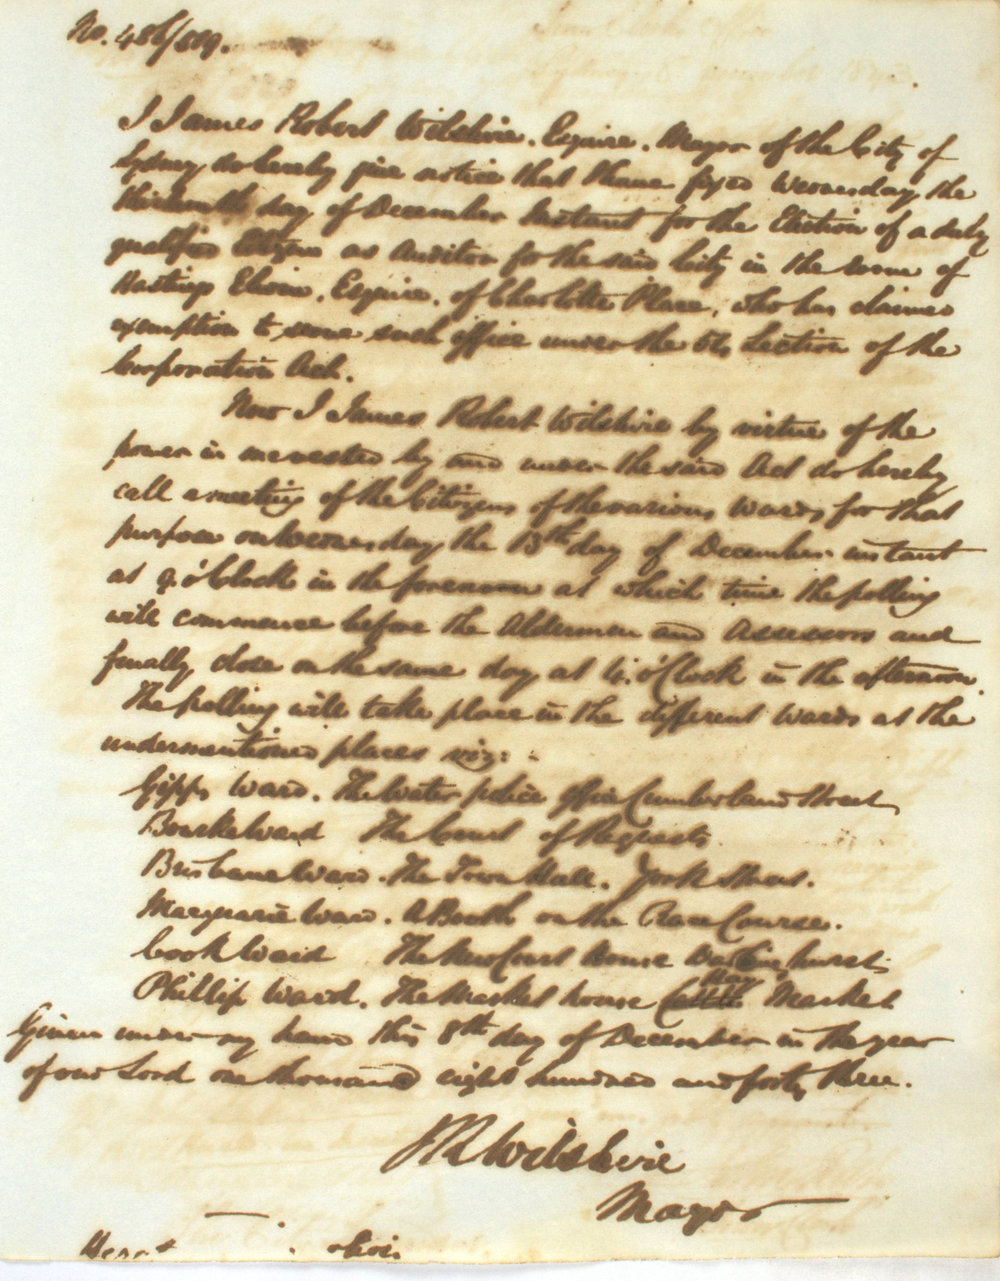 No. 486/889.
I James Robert Wilshire. Esquire. Mayor of the City of
Sydney do hereby give notice that I have fixed Wednesday the
thirteenth day of December Instant for the Election of a duly
qualified Citizen as Auditor for the said City in the room of
Hastings Elwin. Esquire. of Charlotte Place, who has claimed
exemption to serve such office under the 56 Section of the
Corporation Act.
Now I James Robert Wilshire by virtue of the
power in me vested by and under the said Act do hereby
call a meeting of the Citizens of the various Wards for that
purpose on Wednesday the 13th day of December instant
at 9. o'Clock in the forenoon at which time the polling
will commence before the Aldermen and Assessors and
finally close on the same day at 4. o'Clock in the afternoon.
The polling will take place in the different Wards at the
undermentioned places viz:
Gipps Ward. The Water police Office Cumberland Street
Bourke Ward The Court of Requests
Brisbane Ward. The Town Hall. York Street.
Macquarie Ward. A Booth on the Race Course.
Cook Ward The New Court House Darlinghurst.
Phillip Ward. The Market house Hay Market
Given under my hand this 8th day of December in the year
of our Lord one thousand eight hundred and forty three.
JR Wilshire
Mayor